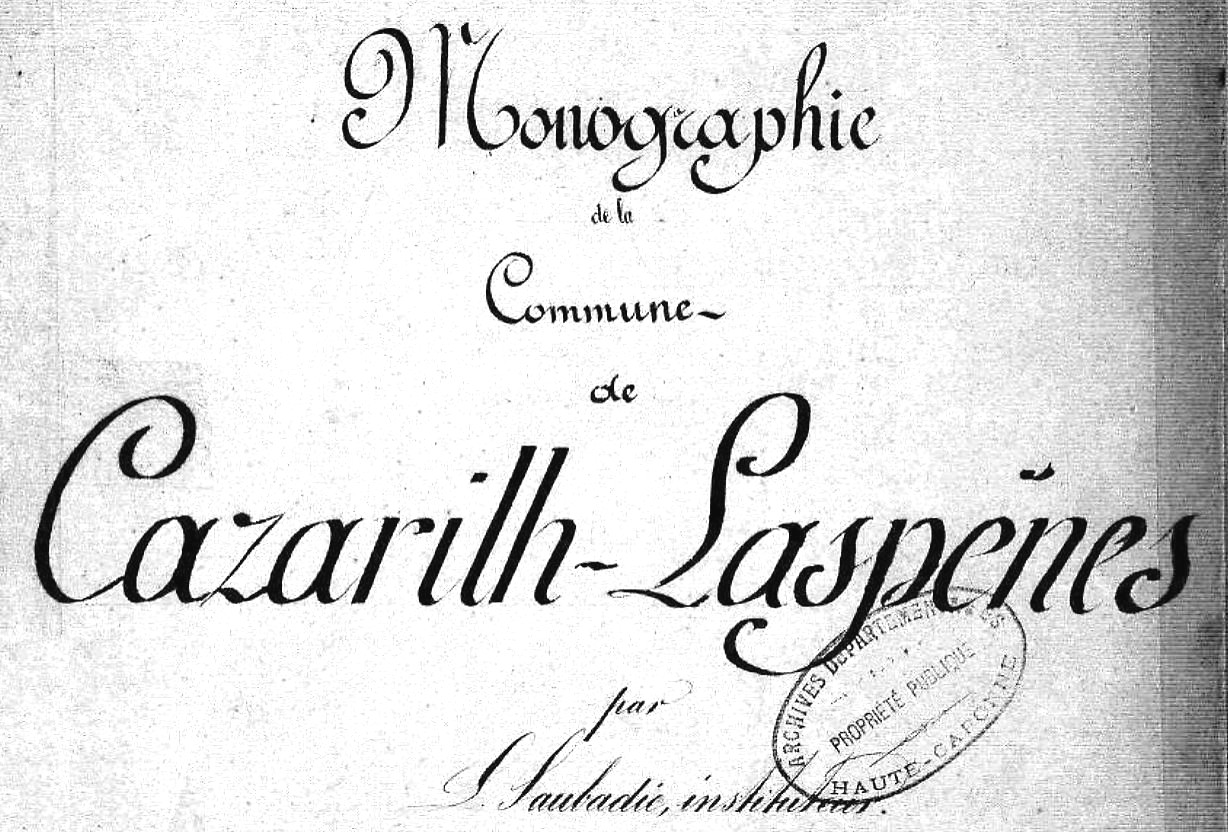 Monographie
de la
Commune
de
Cazarilh-Laspeñes
par
S. Saubadie, instituteur.
ARCHIVES DÉPARTEMENTALES
PROPRIÉTÉ PUBLIQUE
HAUTE-GARONNE